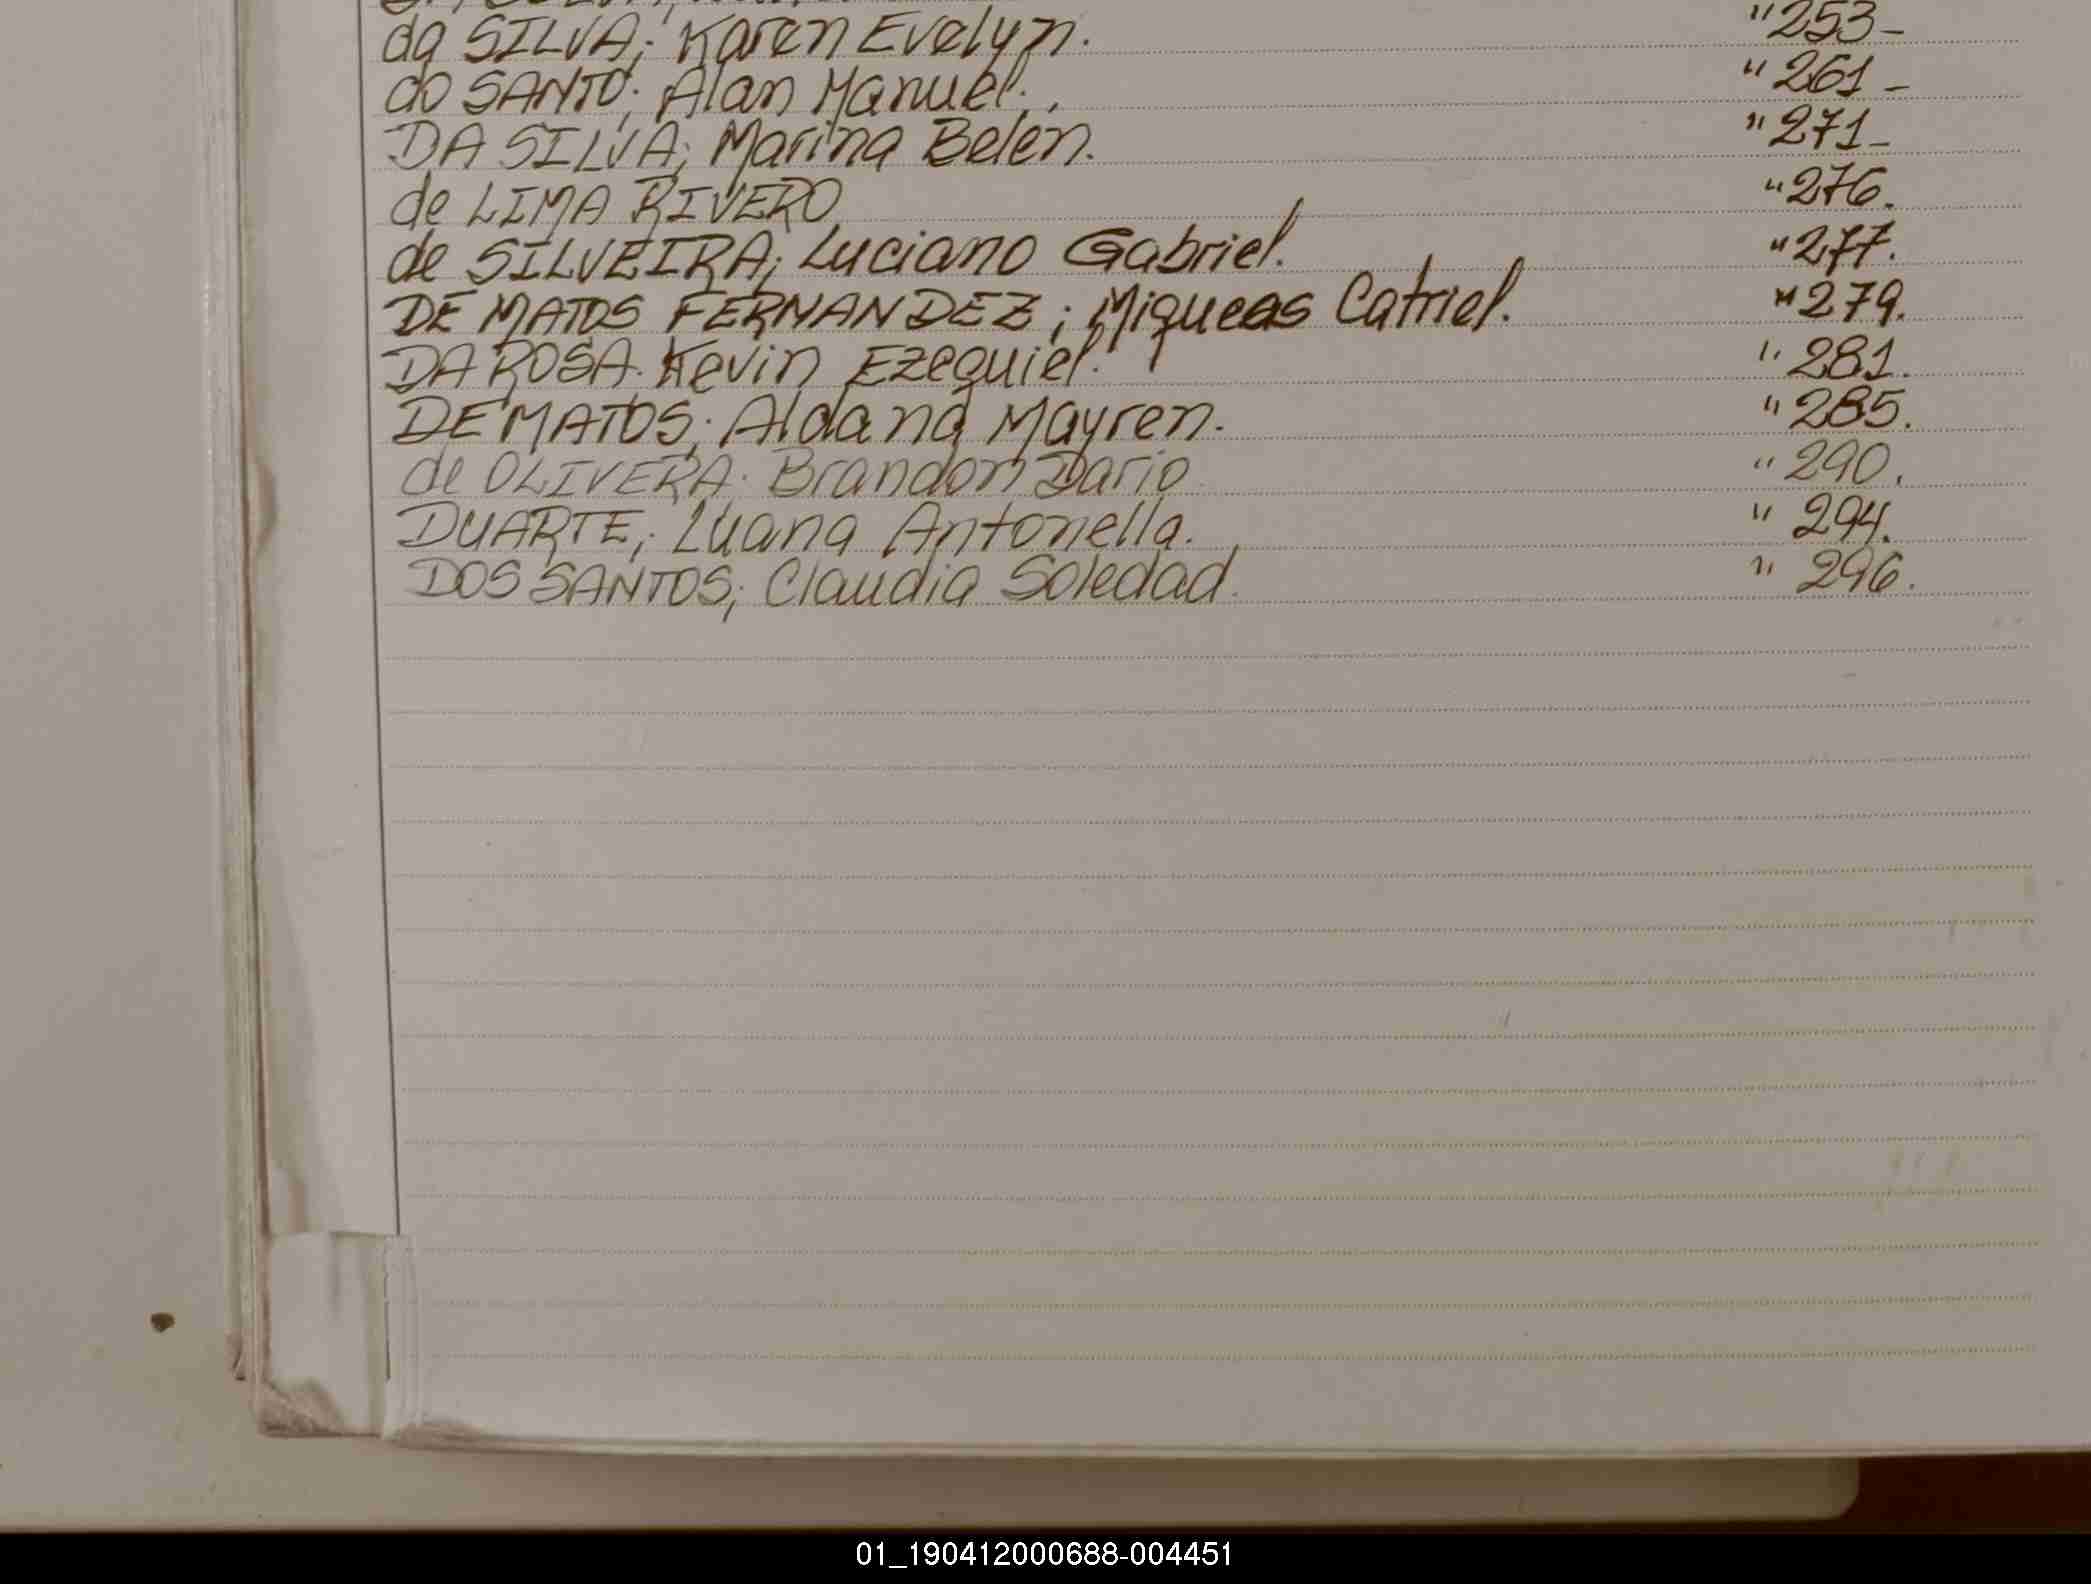 da SILVA; Karen Evelyn. " 253-
do SANTO; Alan Manuel. " 261-
DA SILVA; Marina Belen. " 271-
de LIMA RIVERO " 276.
de SILVEIRA; Luciano Gabriel. " 277.
DE MATOS FERNANDEZ; Miqueas Catriel. " 279.
DA ROSA. Kevin Ezequiel. " 281.
DE MATOS; Aldana Mayren. " 285.
de OLIVERA. Brandon Dario " 290.
DUARTE; Luana Antonella. " 294.
DOS SANTOS; Claudia Soledad. " 296.
01_190412000688-004451